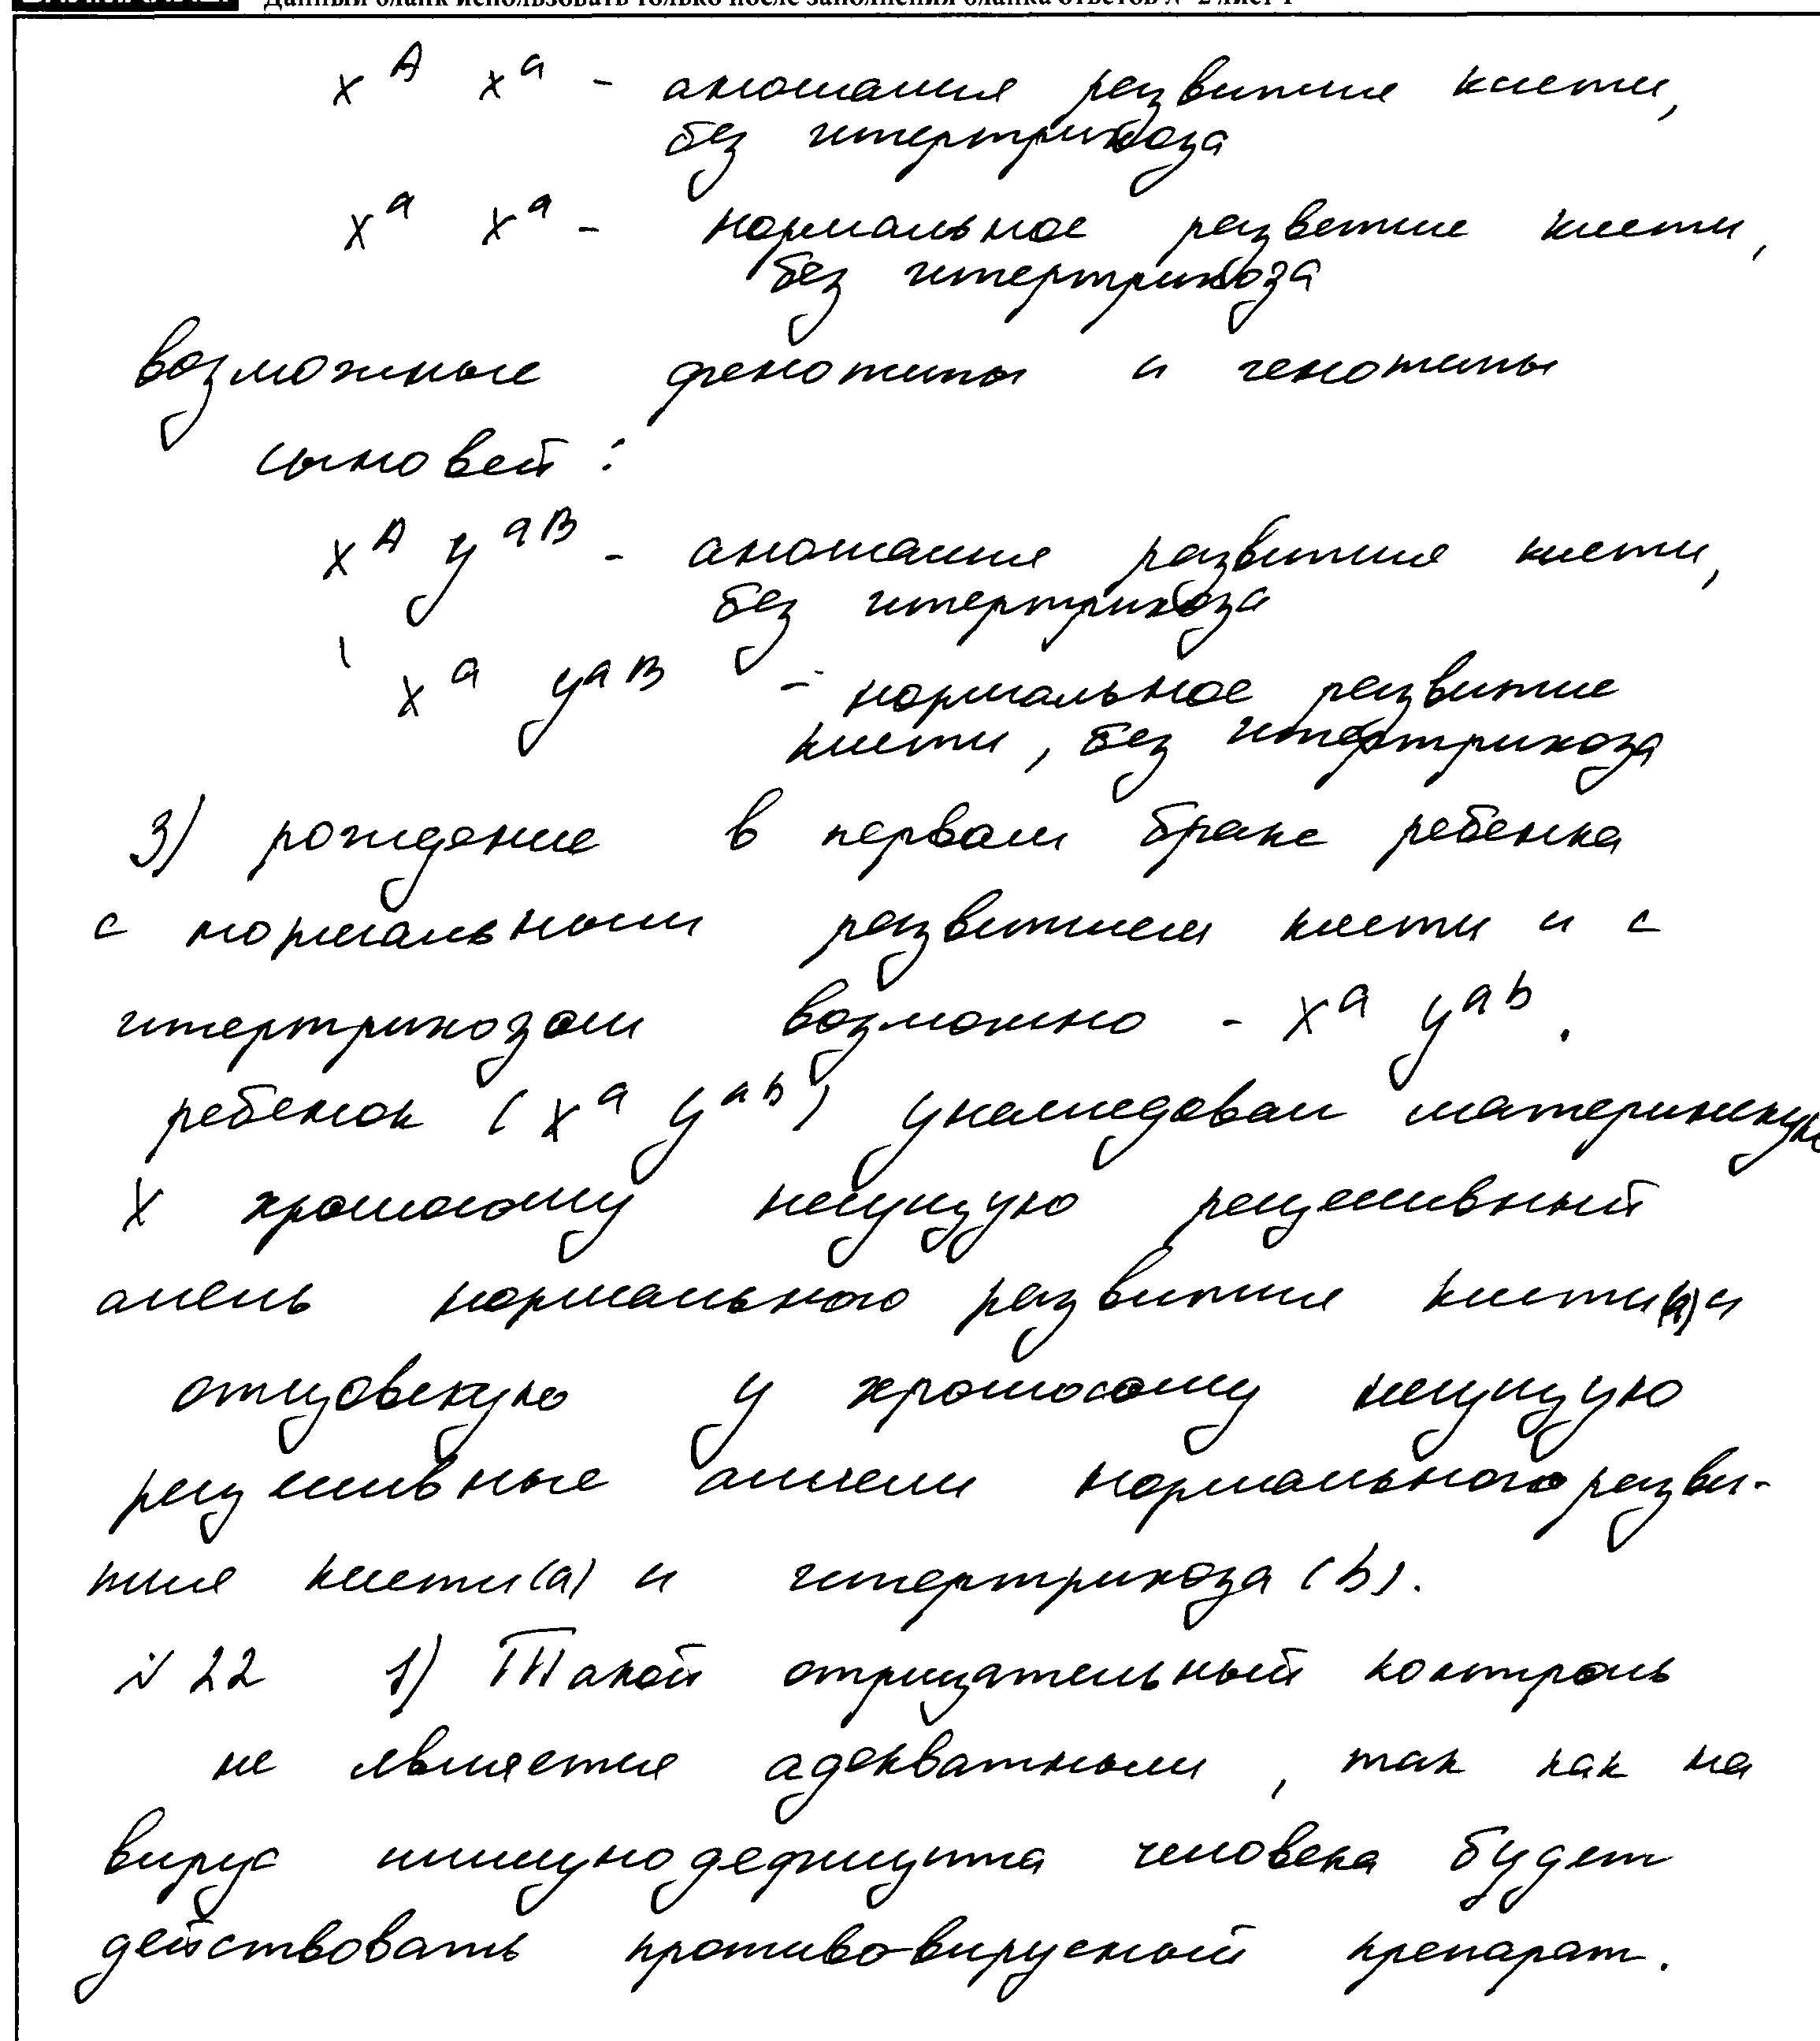 Данный бланк использовать только после заполнения бланка ответов № 2 лист 1
x^A x^a - аномалия развития кисти,
без гипертрихоза
x^a x^a - нормальное развитие кисти,
без гипертрихоза
возможные фенотипы и генотипы
сыновей:
x^A y^aB - аномалия развития кисти,
без гипертрихоза
x^a y^aB - нормальное развитие
кисти, без гипертрихоза
3) рождение в первом браке ребенка
с нормальным развитием кисти и с
гипертрихозом возможно - x^a y^ab.
ребенок (x^a y^ab) унаследовал материнскую
X хромосому несущую рецессивный
алель нормального развития кисти(а) и
отцовскую y хромосому несущую
рецессивные аллели нормального разви-
тия кисти(а) и гипертрихоза (b).
№ 22 1) Такой отрицательный контроль
не является адекватным, так как на
вирус иммунодефицита человека будет
действовать противовирусный препарат.